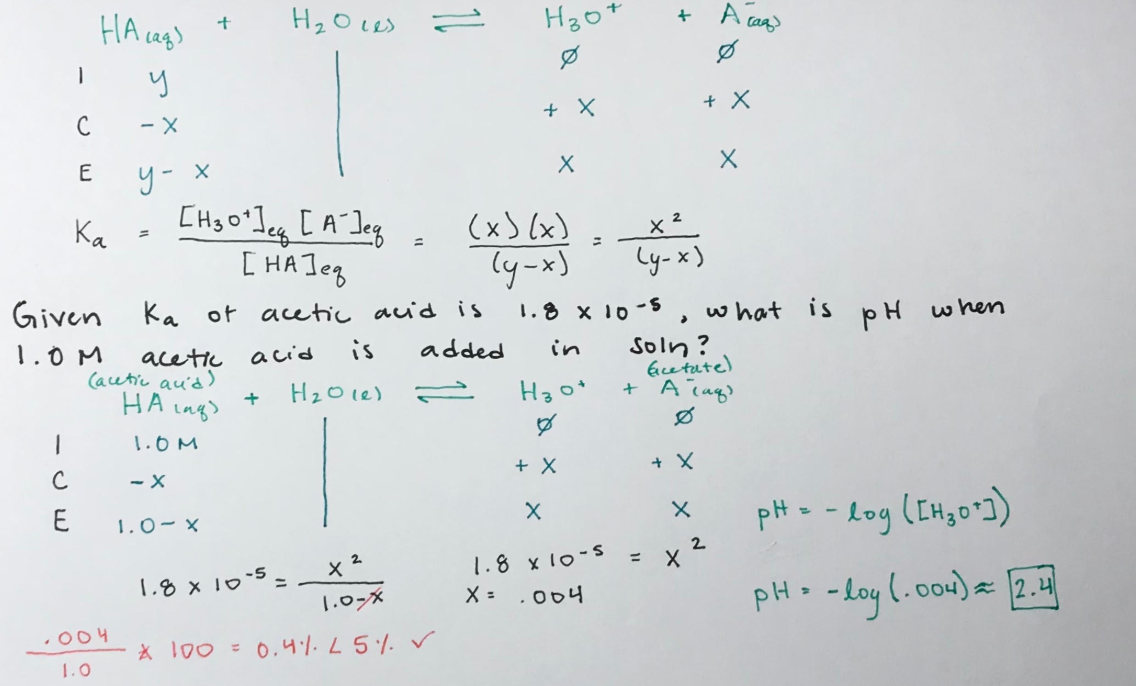 HA(aq) + H2O(l) ⇌ H3O⁺ + A⁻(aq)
I y ∅ ∅
C -x + x + x
E y - x x x
Ka = [H3O⁺]eq [A⁻]eq / [HA]eq = (x)(x) / (y-x) = x² / (y-x)
Given Ka of acetic acid is 1.8 x 10⁻⁵, what is pH when
1.0 M acetic acid is added in soln?
(acetic acid) (acetate)
HA(aq) + H2O(l) ⇌ H3O⁺ + A⁻(aq)
I 1.0 M ∅ ∅
C -x + x + x
E 1.0 - x x x
pH = - log ([H3O⁺])
1.8 x 10⁻⁵ = x² / 1.0-x
1.8 x 10⁻⁵ = x²
x = .004
pH = -log(.004) ≈ 2.4
.004 / 1.0 * 100 = 0.4% < 5% ✓